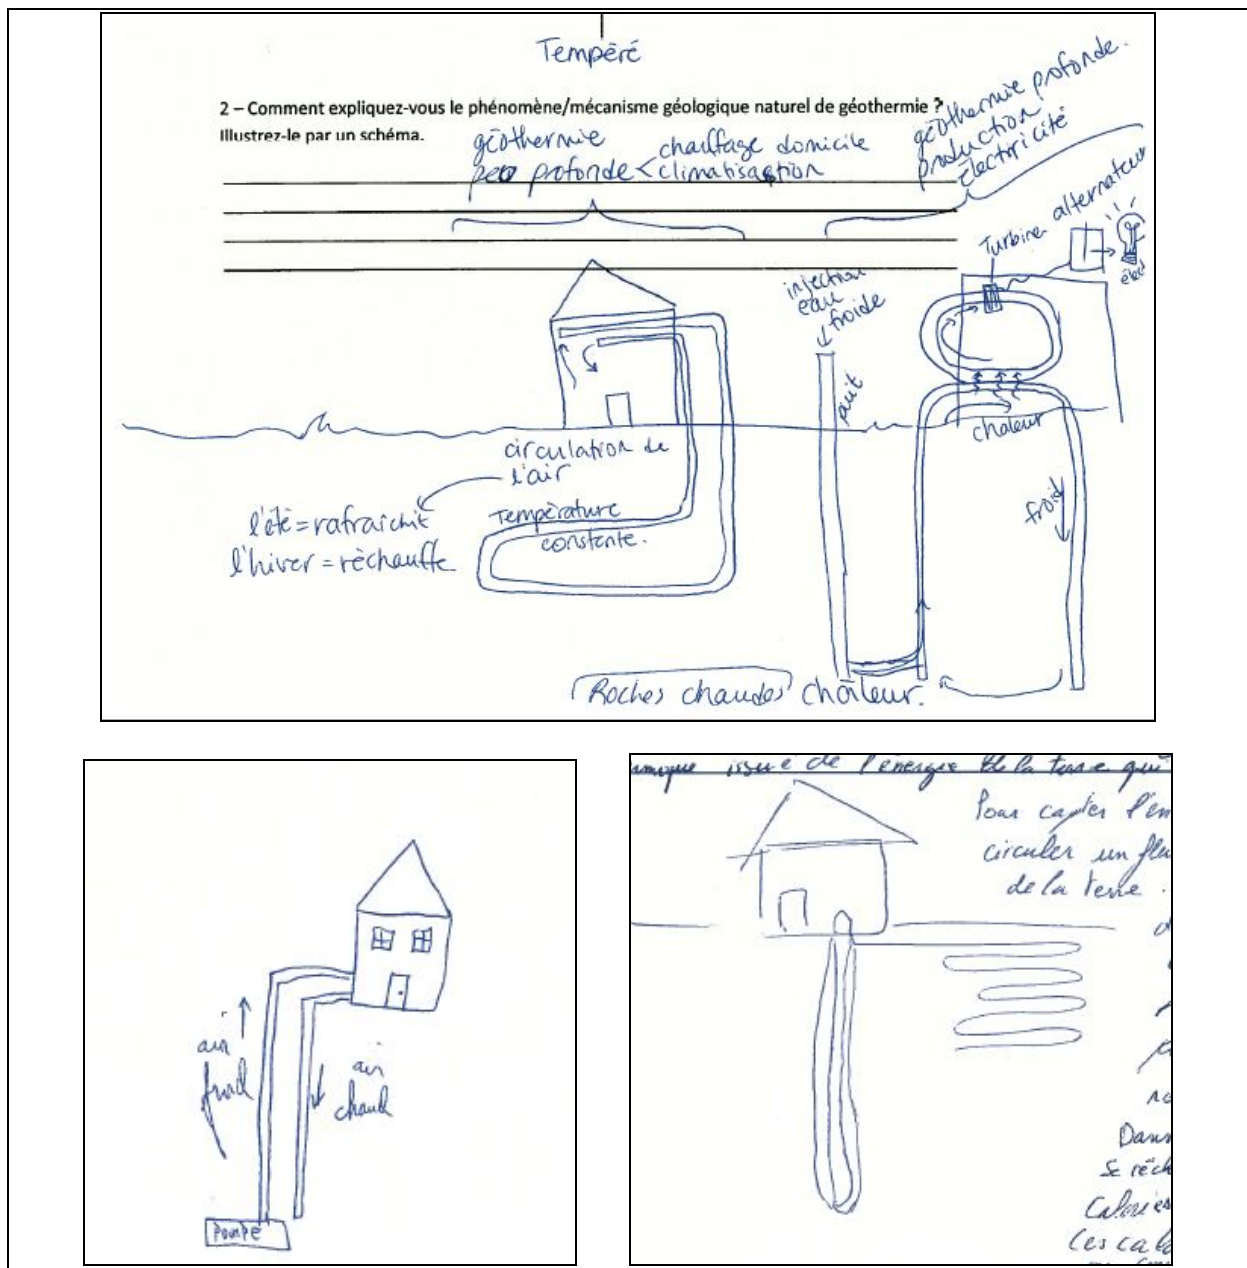 Tempéré
2 – Comment expliquez-vous le phénomène/mécanisme géologique naturel de géothermie ?
Illustrez-le par un schéma.
géothermie
peu profonde < chauffage domicile
climatisation
géothermie profonde.
production
électricité
Turbine alternateur
élec
injection
eau
froide
puit
chaleur
froid
circulation de
l'air
l'été = rafraichit
l'hiver = réchauffe
Température
constante.
Roches chaudes chaleur.
air
froid
air
chaud
Pompe
issue de l'énergie de la terre qui
Pour capter l'en
circuler un flu
de la terre.
Dans
se réch
Calories
Ces calo